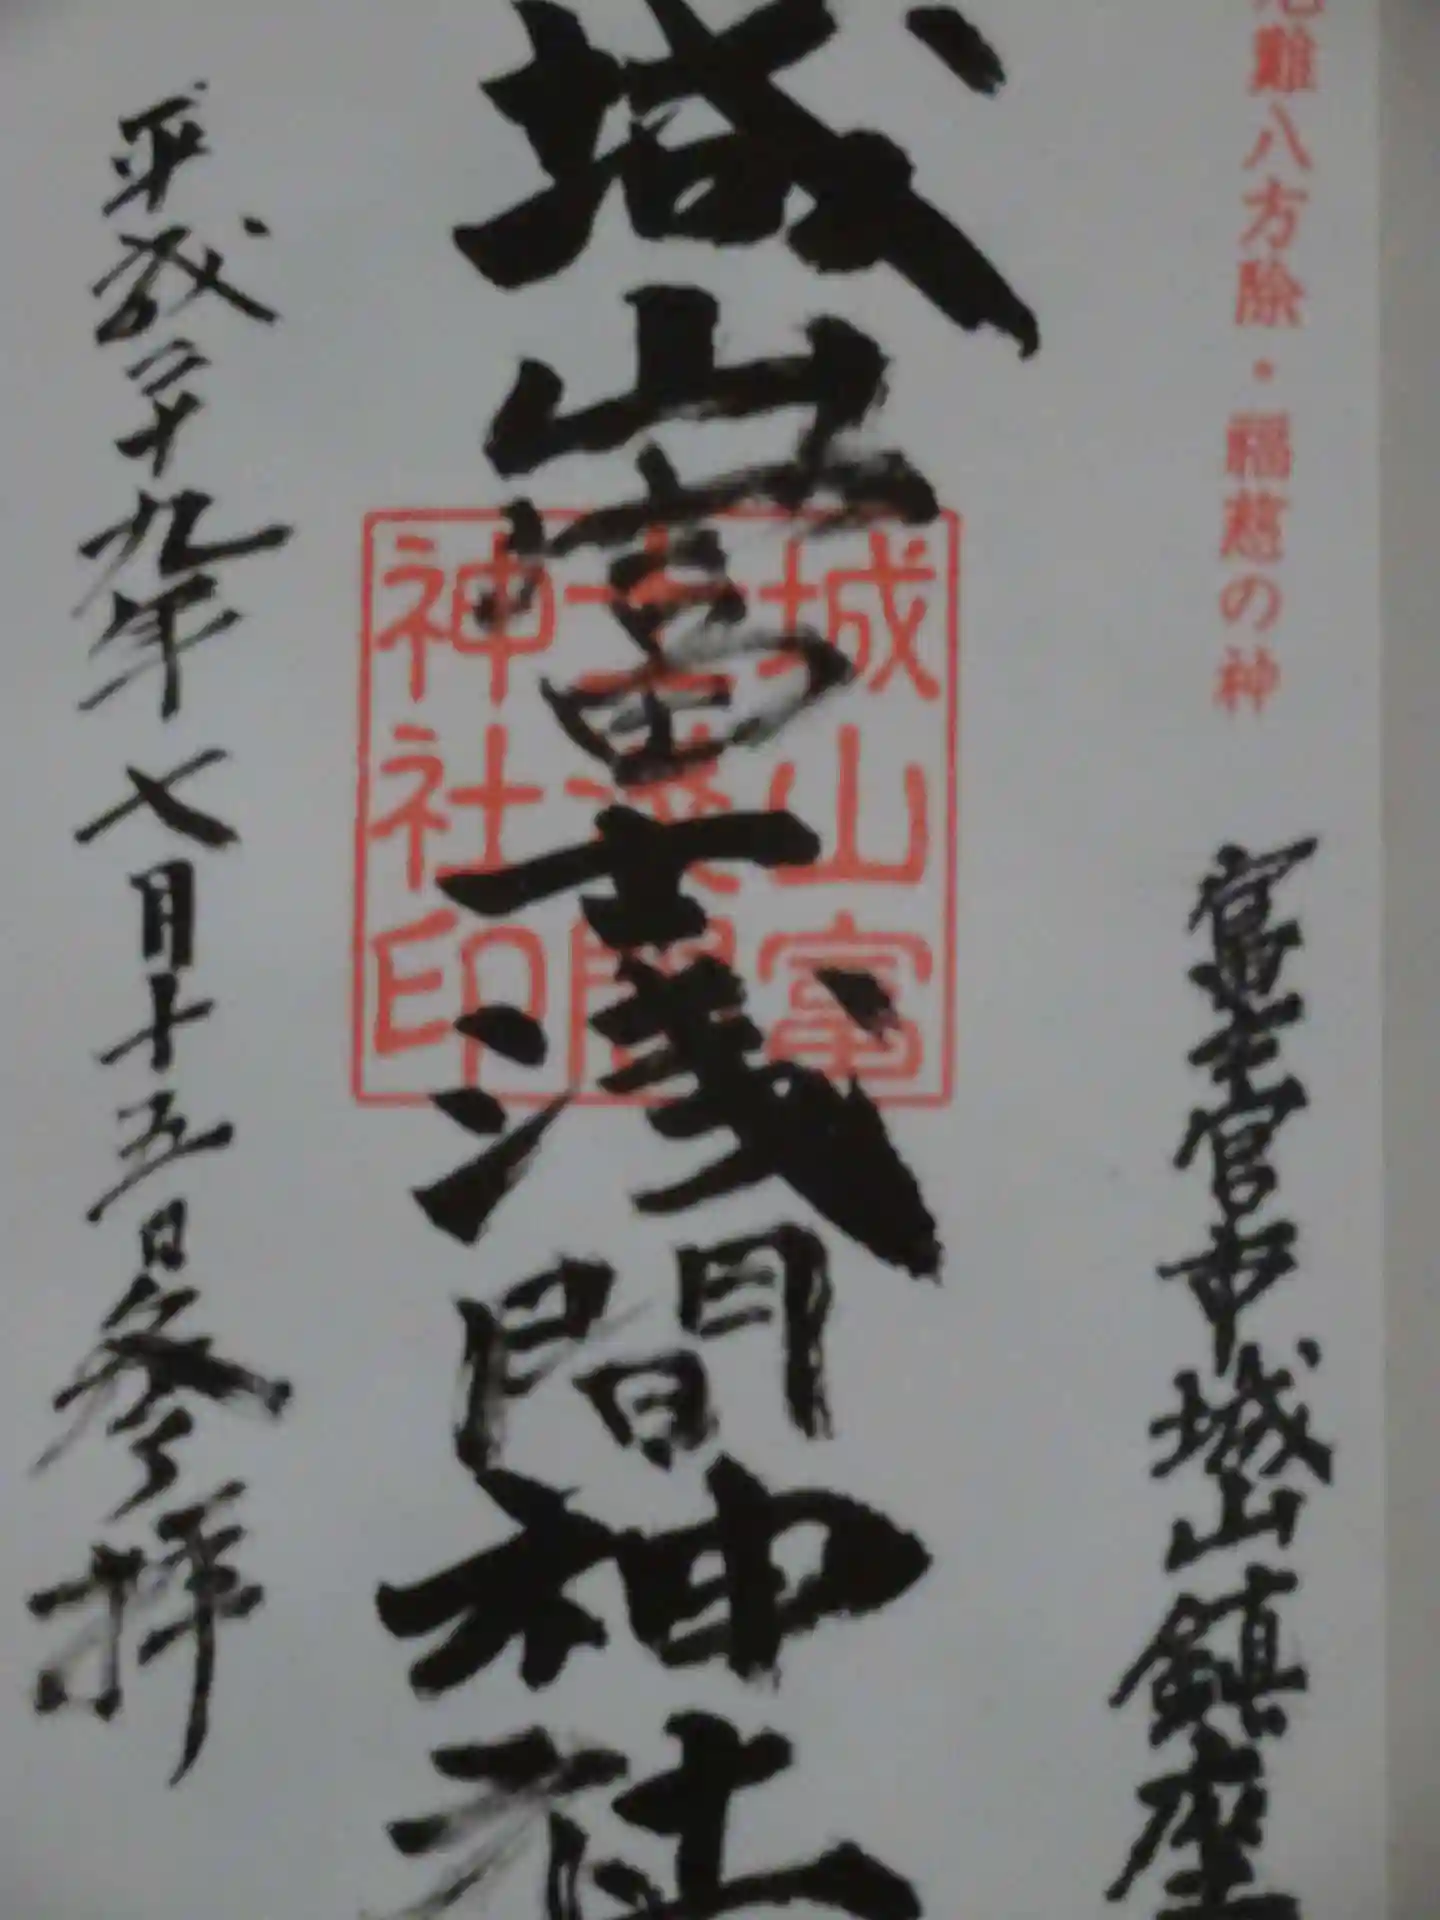 厄難八方除・福慈の神
富士宮市城山鎮座
城山富士浅間神社
城山富
士浅間
神社印
平成二十九年七月十五日参拝